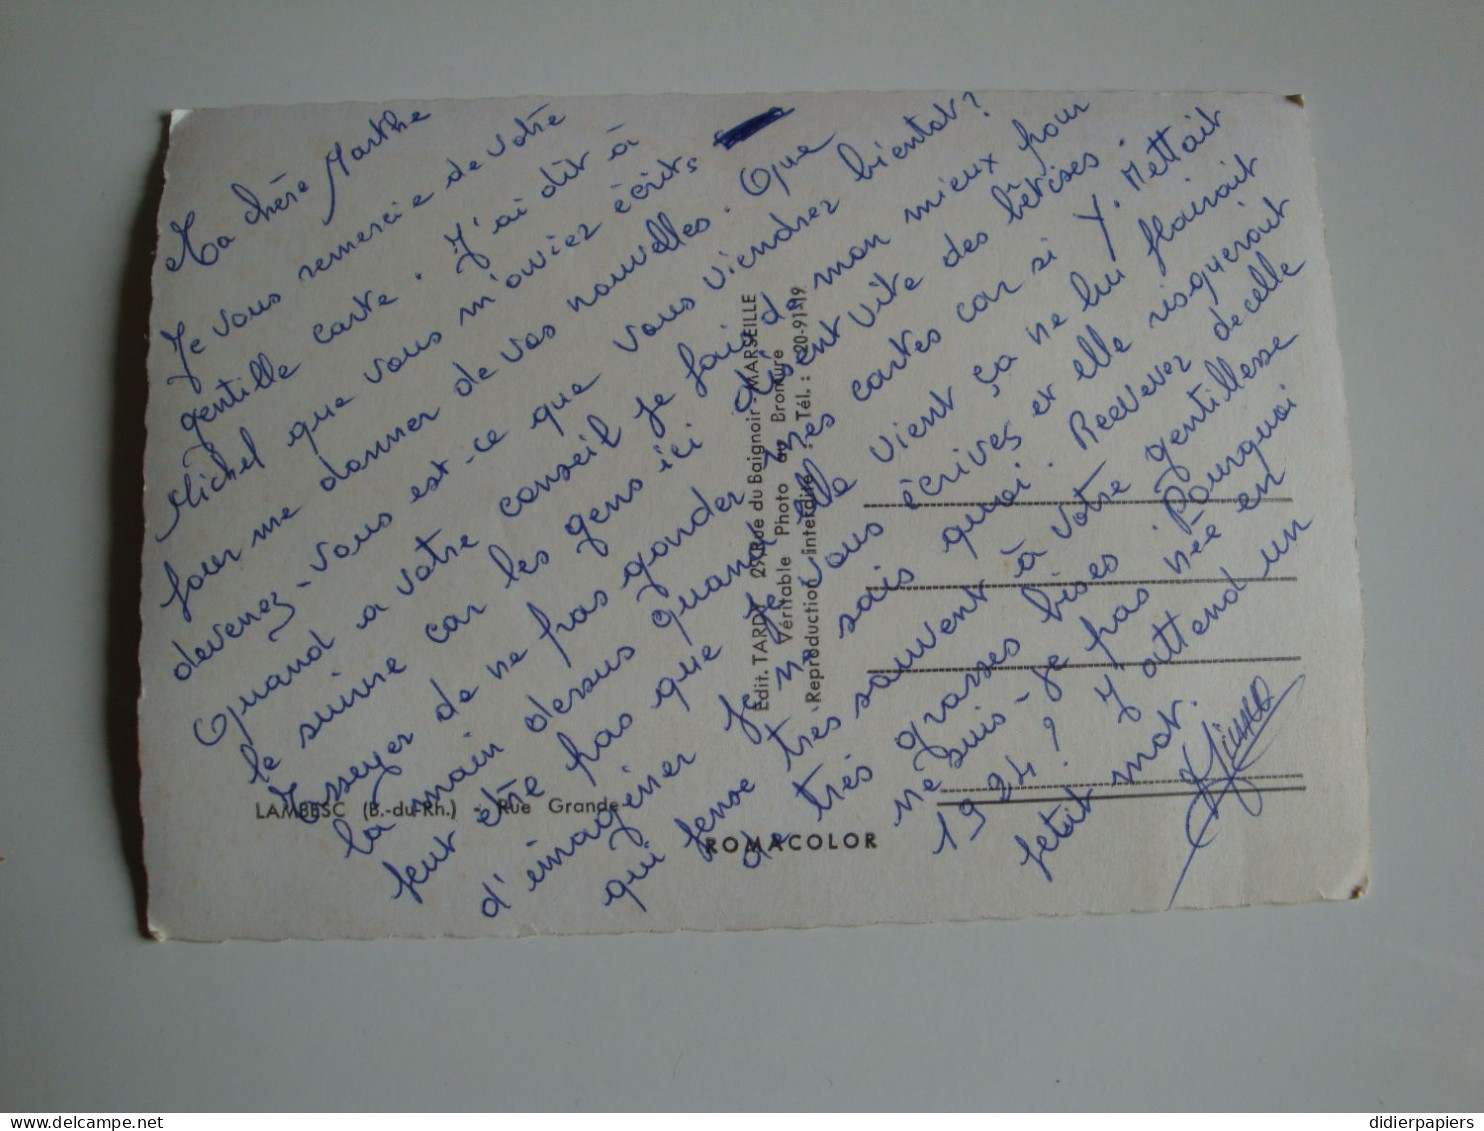 Ma chère Marthe
Je vous remercie de votre
gentille carte. J'ai dit à
Michel que vous m'aviez écrits
pour me donner de vos nouvelles. Que
devenez-vous est-ce que vous viendrez bientot?
Quand a votre conseil je fais de mon mieux pour
le suivre car les gens ici disent vite des bêtises.
Essayer de ne pas garder mes cartes car si Y. Mettait
la main dessus quand elle vient ça ne lui plairait
peut être pas que je vous écrives et elle risquerait
d'imaginer je ne sais quoi. Recevez de celle
qui pense très souvent à votre gentillesse
de très grasses bises. Pourquoi
ne suis-je pas née en
1924? J'attend un
petit mot.
Edit. TARDY 29, Rue du Baignoir - MARSEILLE
Véritable Photo au Bromure
Reproduction interdite : Tél. : 20-91-19
LAMBESC (B.-du-Rh.) - Rue Grande
ROMACOLOR
didierpapiers
delcampe.net